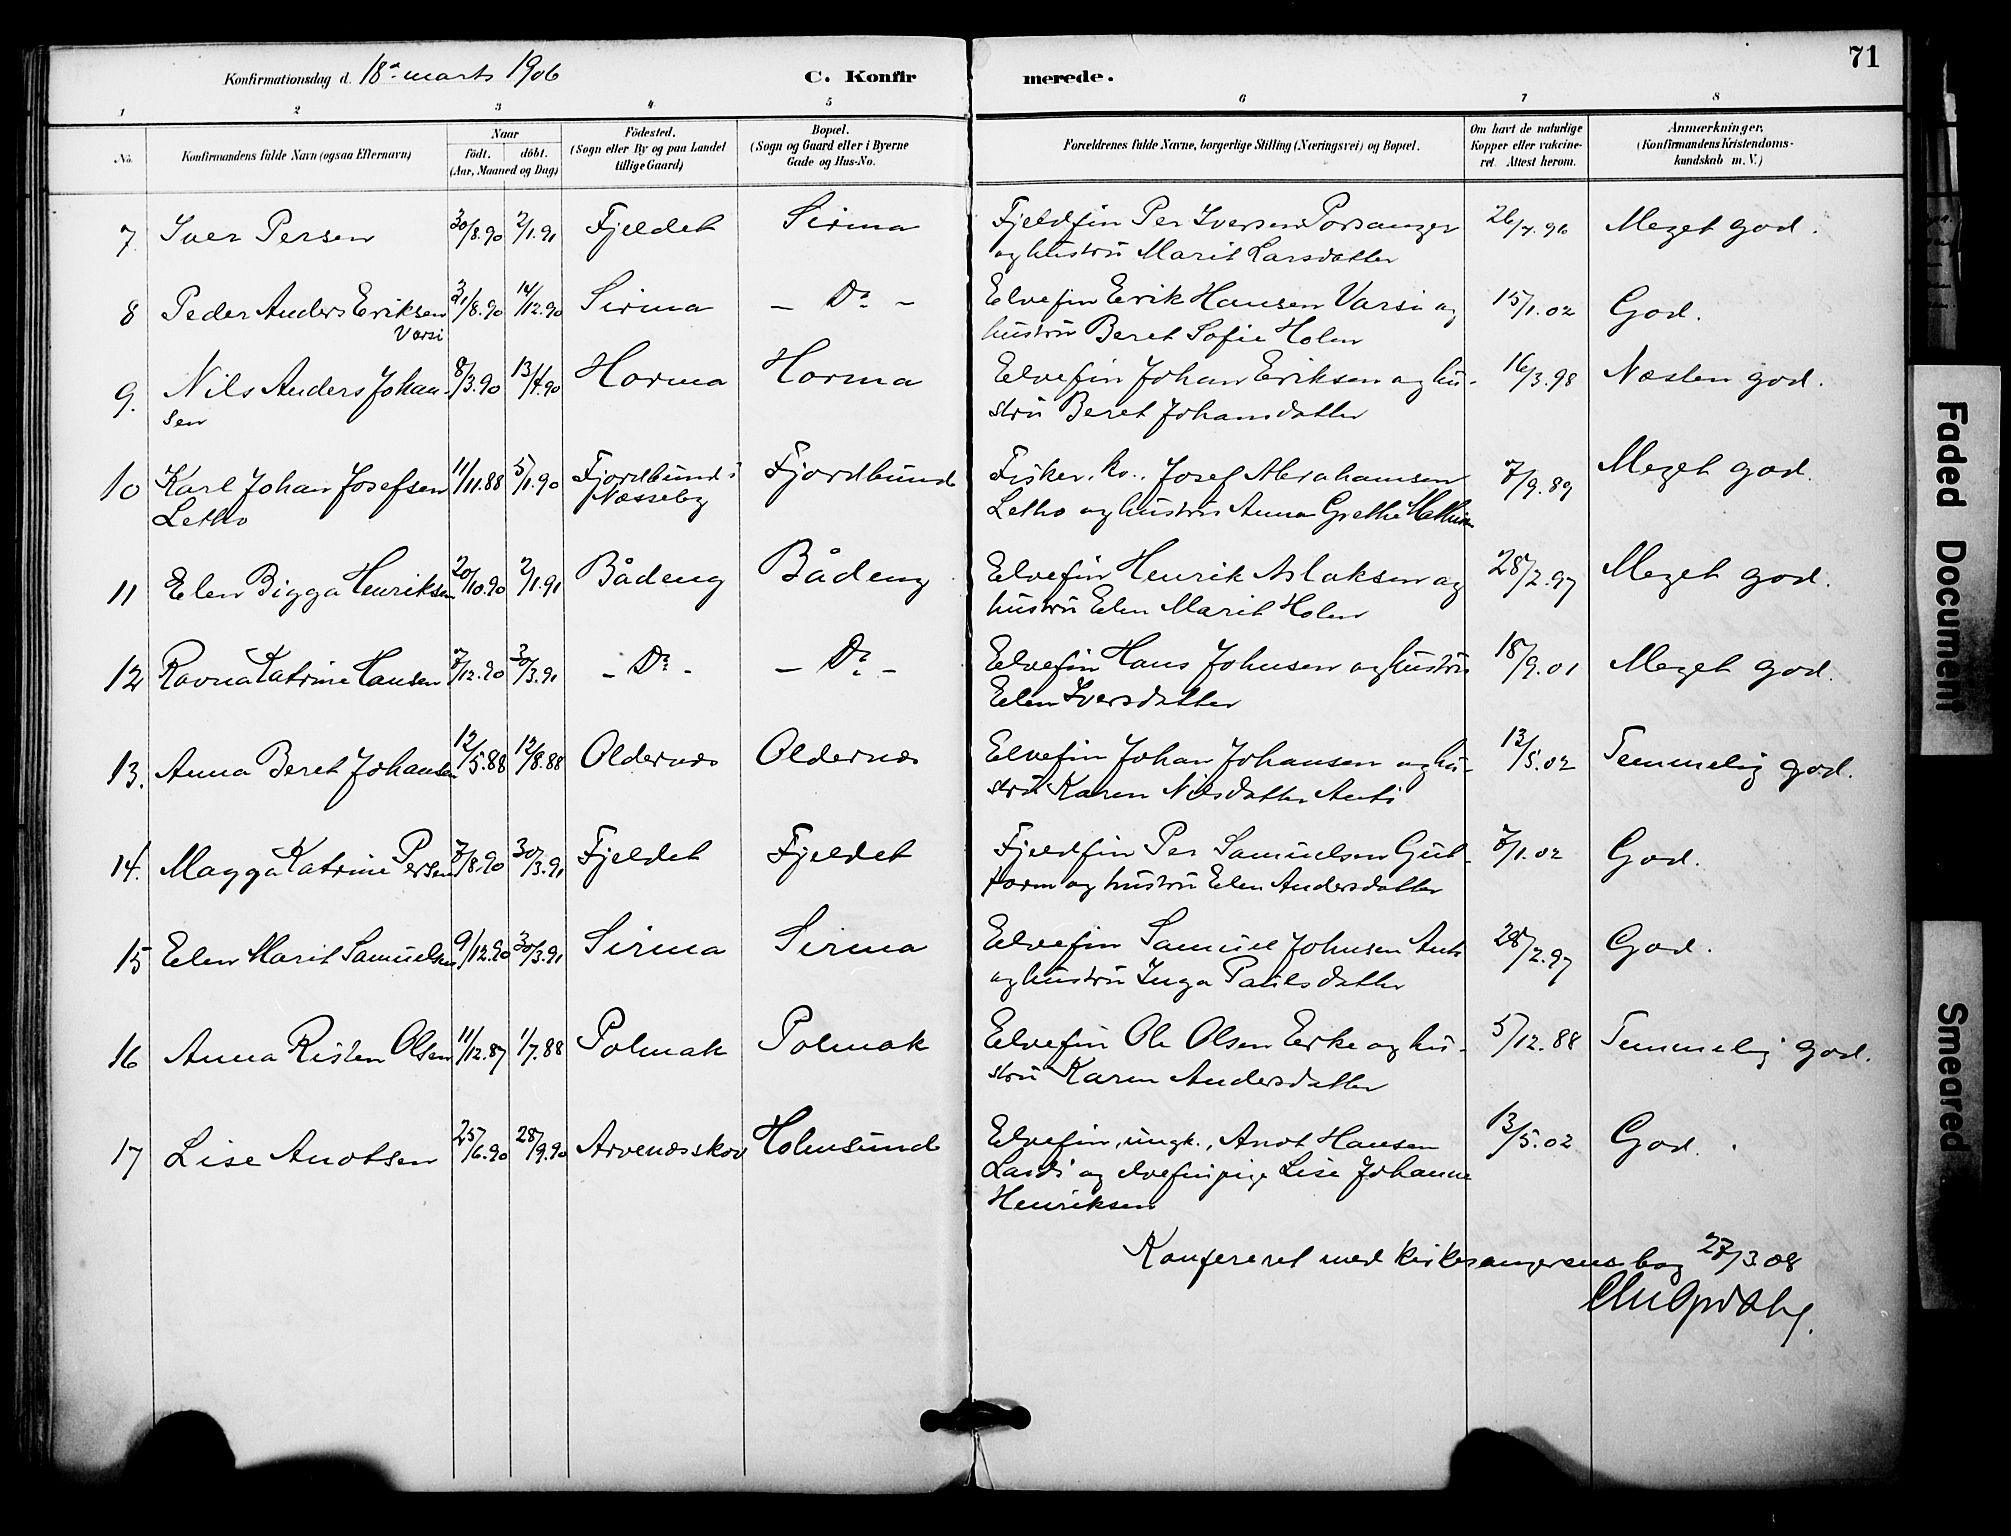 71
Konfirmationsdag d. 18de marts 1906
C. Konfirmerede.
1 2 3 4 5 6 7 8
No.
Konfirmandens fulde Navn (ogsaa Efternavn)
Naar
födt. döbt.
(Aar, Maaned og Dag)
Födested.
(Sogn eller By og paa Landet
tillige Gaard)
Bopæl.
(Sogn og Gaard eller i Byerne
Gade og Hus-No.
Forældrenes fulde Navne, borgerlige Stilling (Næringsvei) og Bopæl.
Om havt de naturlige
Kopper eller vakcine-
ret. Attest herom.
Anmærkninger.
(Konfirmandens Kristendoms-
kundskab m. V.)
7. Iver Persen 30/8.90 2/1.91 Fjeldet Sirma Fjeldfin Per Iversen Porsanger 26/7.96 Meget god.
og hustru Marit Larsdatter
8 Peder Anders Eriksen 31/8.90 14/12.90 Sirma — Do — Elvefin Erik Hansen Varsi og 15/1.02 God.
Varsi hustru Beret Sofie Holm
9. Nils Anders Johan- 8/3.90 13/4.90 Horma Horma Elvefin Johan Eriksen og hu- 16/3.98 Næsten god.
sen stru Beret Johansdatter
10 Karl Johan Josefsen 11/11.88 5/1.90 Fjordbund i Fjordbund Fisker, kv., Josef Abrahamsen 7/9.89 Meget god.
Letho Næsseby Letho og hustru Anna Grethe
11 Elen Bigga Henriksen 20/10.90 2/1.91 Bådeng Bådeng Elvefin Henrik Aslaksen og 28/2.97 Meget god.
hustru Elen Marit Holm
12 Ravna Katrine Hansen 7/12.90 30/3.91 - Do - — Do — Elvefin Hans Johnsen og hustru 18/9.01 Meget god.
Elen Iversdatter
13. Anna Beret Johansen 12/5.88 12/8.88 Oldernæs Oldernæs Elvefin Johan Johansen og hu- 13/5.02 Temmelig god.
stru Karen Nilsdatter Anti
14. Magga Katrine Persen 7/8.90 30/3.91 Fjeldet Fjeldet Fjeldfin Per Samuelsen Gut- 7/1.02 God.
torm og hustru Elen Andersdatter
15 Elen Marit Samuelsen 9/12.90 30/3.91 Sirma Sirma Elvefin Samuel Johnsen Anti 28/2.97 God.
og hustru Inga Paulsdatter
16 Anna Risten Olsen 11/12.87 1/7.88 Polmak Polmak Elvefin Ole Olsen Erke og hu- 5/12.88 Temmelig god.
stru Karen Andersdatter
17 Lise Anotsen 25/6.90 28/9.90 Arvenæsskov Holmsund Elvefin, ungk., Anot Hansen 13/5.02 God.
og elvefinpige Lise Johanne
Henriksen
Konfereret med kirkesangerens bog 27/3 08
Faded Document
Smeared